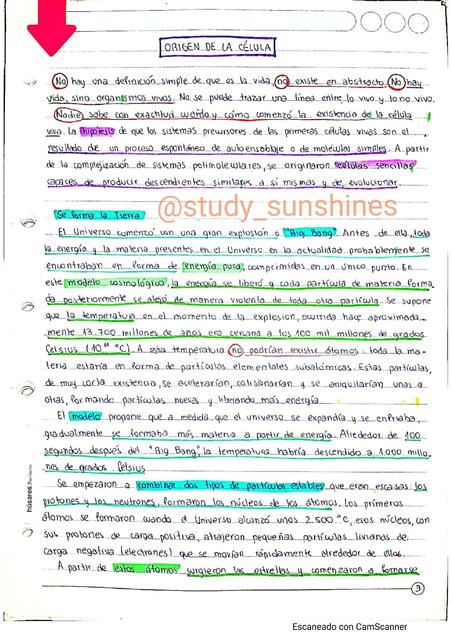 ORIGEN DE LA CÉLULA
No hay una definición simple de que es la vida, no existe en abstracto. No hay
vida, sino organismos vivos. No se puede trazar una línea entre lo vivo y lo no vivo.
Nadie sabe con exactitud cuándo y cómo comenzó la existencia de la célula
viva. La hipótesis de que los sistemas precursores de las primeras células vivas son el
resultado de un proceso espontáneo de autoensamblaje de moléculas simples. A partir
de la complejización de sistemas polimoleculares, se originaron células sencillas
capaces de producir descendientes similares a sí mismas y de evolucionar.
Se forma la Tierra
@study_sunshines
El Universo comenzó con una gran explosión o "Big Bang". Antes de ella, toda
la energía y la materia presentes en el Universo en la actualidad probablemente se
encontraban en forma de energía pura, comprimidas en un único punto. En
este modelo cosmológico, la energía se liberó y cada partícula de materia forma
da posteriormente se alejó de manera violenta de toda otra partícula. Se supone
que la temperatura en el momento de la explosión, ocurrida hace aproximada-
mente 13.700 millones de años era cercana a los 100 mil millones de grados
Celsius (10¹¹ °C). A esta temperatura no podrían existir átomos: toda la ma-
teria estaría en forma de partículas elementales subatómicas. Estas partículas,
de muy corta existencia, se acelerarían, colisionarían y se aniquilarían unas a
otras, formando partículas nuevas y liberando más energía.
El modelo propone que a medida que el universo se expandía y se enfriaba,
gradualmente se formaba más materia a partir de energía. Alrededor de 100
segundos después del "Big Bang", la temperatura habría descendido a 1.000 millo-
nes de grados Celsius
Se empezaron a combinar dos tipos de partículas estables que eran escasas: los
protones y los neutrones, formaron los núcleos de los átomos. Los primeros
átomos se formaron cuando el Universo alcanzó unos 2.500 °C, esos núcleos, con
sus protones de carga positiva, atrajeron pequeñas partículas livianas de
carga negativa (electrones) que se movían rápidamente alrededor de ellos.
A partir de estos átomos surgieron las estrellas y comenzaron a formarse
3
húsares
Escaneado con CamScanner